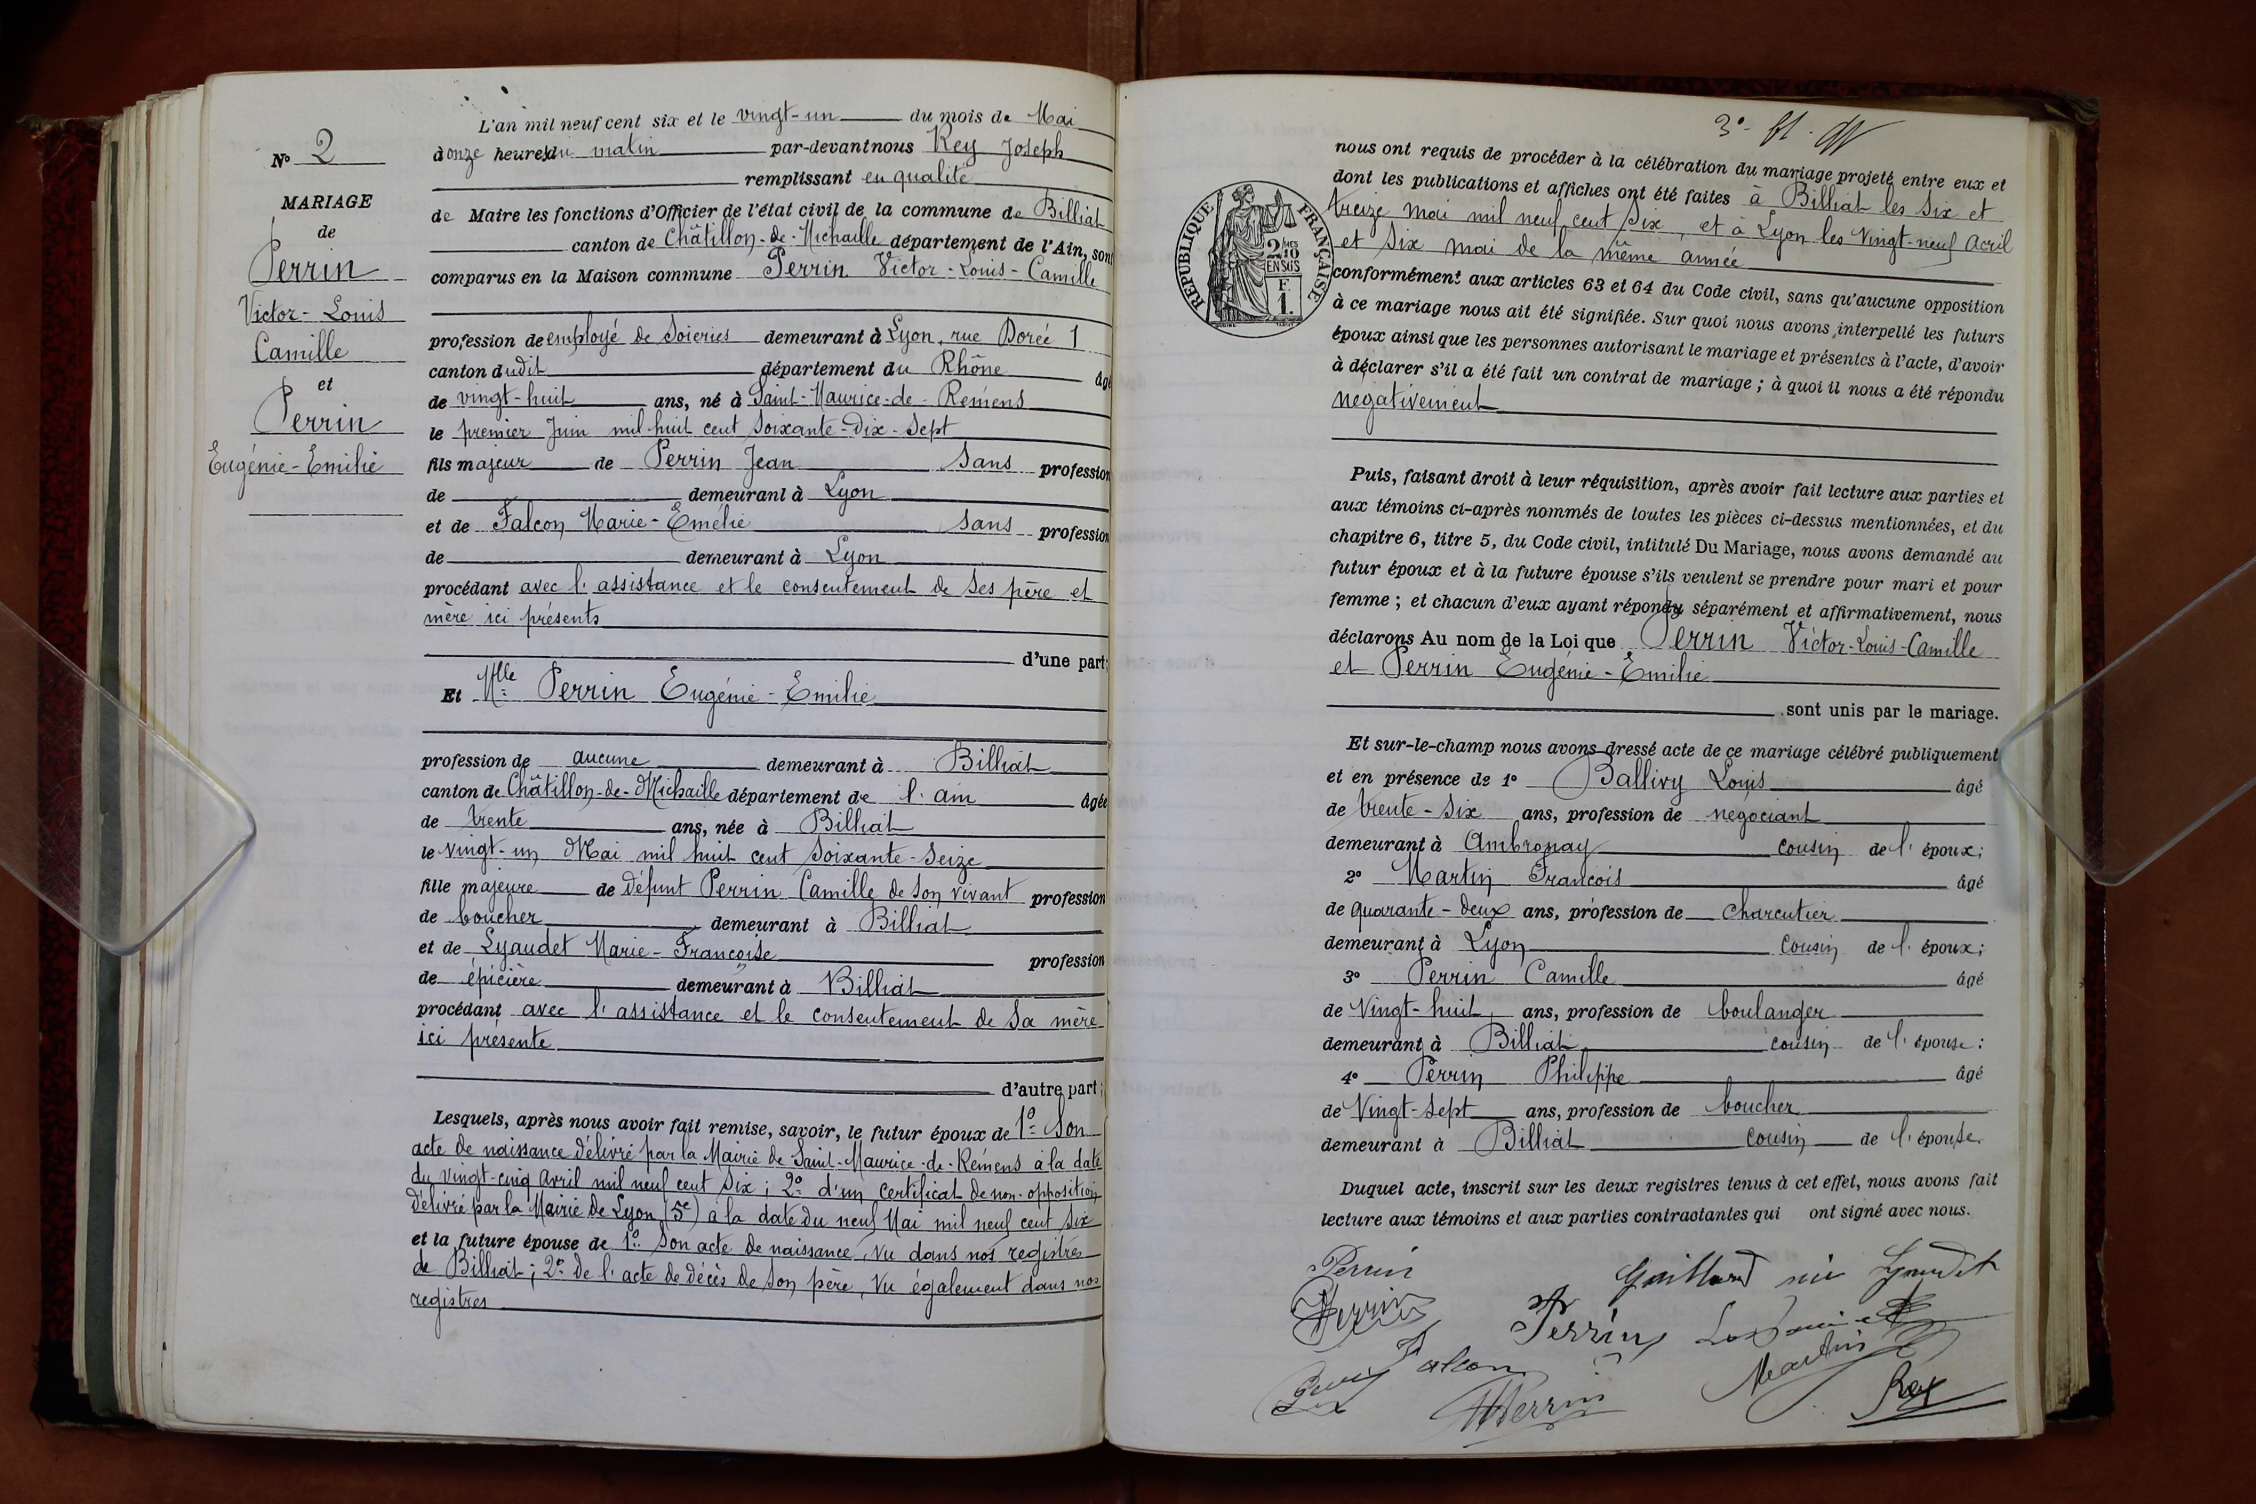 L'an mil neuf cent six et le vingt-un du mois de Mai
N° 2
à onze heures du matin par-devant nous Rey Joseph
remplissant en qualité
MARIAGE
de Maire les fonctions d'Officier de l'état civil de la commune de Billiat
de
canton de Châtillon-de-Michaille département de l'Ain, sont
Perrin
comparus en la Maison commune Perrin Victor-Louis-Camille
Victor-Louis
profession de employé de Soieries demeurant à Lyon, rue Dorée 1
Camille
canton dudit département du Rhône âgé
et
de vingt-huit ans, né à Saint-Maurice-de-Rémens
Perrin
le premier Juin mil huit cent soixante-dix-sept
Eugénie-Emilie
fils majeur de Perrin Jean Sans profession
de demeurant à Lyon
et de Falcon Marie-Emélie Sans profession
de demeurant à Lyon
procédant avec l'assistance et le consentement de ses père et
mère ici présents
d'une part;
Et Mlle Perrin Eugénie-Emilie
profession de aucune demeurant à Billiat
canton de Châtillon-de-Michaille département de l'ain âgée
de trente ans, née à Billiat
le vingt-un Mai mil huit cent soixante-seize
fille majeure de défunt Perrin Camille de son vivant profession
de boucher demeurant à Billiat
et de Lyaudet Marie-Françoise profession
de épicière demeurant à Billiat
procédant avec l'assistance et le consentement de sa mère
ici présente
d'autre part;
Lesquels, après nous avoir fait remise, savoir, le futur époux de 1° Son
acte de naissance délivré par la Mairie de Saint-Maurice-de-Rémens à la date
du vingt-cinq Avril mil neuf cent six; 2° d'un certificat de non-opposition
délivré par la Mairie de Lyon (5e) à la date du neuf Mai mil neuf cent six
et la future épouse de 1° Son acte de naissance, vu dans nos registres
de Billiat; 2° de l'acte de décès de son père, vu également dans nos
registres
3°
nous ont requis de procéder à la célébration du mariage projeté entre eux et
dont les publications et affiches ont été faites à Billiat les six et
treize mai mil neuf cent six, et à Lyon les vingt-neuf Avril
et six mai de la même année
RÉPUBLIQUE FRANÇAISE
2/10MES
EN SUS
F.
1.
conformément aux articles 63 et 64 du Code civil, sans qu'aucune opposition
à ce mariage nous ait été signifiée. Sur quoi nous avons interpellé les futurs
époux ainsi que les personnes autorisant le mariage et présentes à l'acte, d'avoir
à déclarer s'il a été fait un contrat de mariage; à quoi il nous a été répondu
négativement
Puis, faisant droit à leur réquisition, après avoir fait lecture aux parties et
aux témoins ci-après nommés de toutes les pièces ci-dessus mentionnées, et du
chapitre 6, titre 5, du Code civil, intitulé Du Mariage, nous avons demandé au
futur époux et à la future épouse s'ils veulent se prendre pour mari et pour
femme; et chacun d'eux ayant répondu séparément et affirmativement, nous
déclarons Au nom de la Loi que Perrin Victor-Louis-Camille
et Perrin Eugénie-Emilie
sont unis par le mariage.
Et sur-le-champ nous avons dressé acte de ce mariage célébré publiquement
et en présence de 1° Ballivy Louis âgé
de trente-six ans, profession de négociant
demeurant à Ambronay cousin de l'époux;
2° Martin François âgé
de quarante-deux ans, profession de charcutier
demeurant à Lyon cousin de l'époux;
3° Perrin Camille âgé
de Vingt-huit ans, profession de boulanger
demeurant à Billiat cousin de l'épouse:
4° Perrin Philippe âgé
de Vingt-sept ans, profession de boucher
demeurant à Billiat cousin de l'épouse.
Duquel acte, inscrit sur les deux registres tenus à cet effet, nous avons fait
lecture aux témoins et aux parties contractantes qui ont signé avec nous.
Perrin
Perrin
Perrin
Falcon
Martin
Perrin
Rey